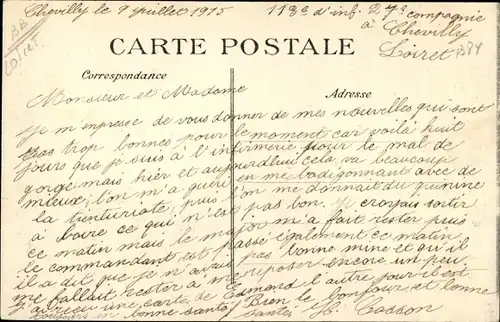 Chevilly le 9 Juillet 1915
118e d'inf. 27e compagnie
à Chevilly
Loiret
CARTE POSTALE
Correspondance
Adresse
Monsieur et Madame
Je m'empresse de vous donner de mes nouvelles qui sont
pas trop bonnes pour le moment car voilà huit
jours que je suis à l'infirmerie pour le mal de
gorge mais hier et aujourd'hui cela va beaucoup
mieux; l'on m'a guéri en me badigonnant avec de
la tinturiote, puis l'on me donnait du quinine
à boire ce qui n'est pas bon. Je croyais sortir
ce matin mais le major m'a fait rester puis
le commandant est passé également ce matin
il a dit que je n'avais pas bonne mine et qu'il
me fallait rester à me reposer encore un peu.
J'ai reçu une carte de Edmond l'autre jour il est
toujours en bonne santé. Bien le bonjour et bonne
santé. H. Cosson